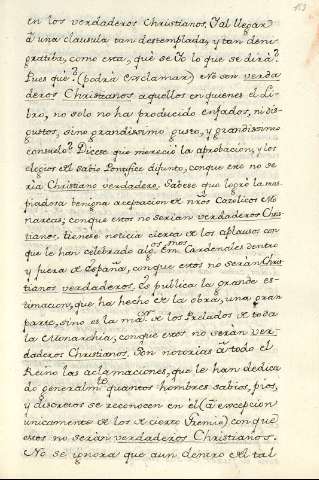 153
en los verdaderos Christianos. Y al llegar
â una clausula tan destemplada, y tan deni
gratiba, como esta, què se yo lo que se dirà?
Pues què? (podrà exclamar) No son verda
deros Christianos aquellos en quienes el Li-
bro, no solo no ha producido enfados, ni dis-
gustos, sino grandissimo gusto, y grandissimo
consuelo? Dicese que mereciò la aprobacion, y los
elogios del sabio Pontifice difunto, conque este no se-
ria Christiano verdadero. Sabese que logrò la mas
piadosa benigna aceptacion de nros Catolicos Mo
narcas; conque estos no serian verdaderos Chris-
tianos. tienese noticia cierta de los aplausos con
que le han celebrado algos. Emos. Cardenales dentro
y fuera de España, conque estos no seràn Christ
tianos verdaderos. Es publica la grande es-
timacion, que ha hecho de la obra, una gran
parte, sino es la mayor de los Prelados de toda
la Monarchia, conque estos no seràn ver-
daderos Christianos. Son notorias â todo el
Reino las aclamaciones, que le han dedica
do generalmte quantos hombres sabios, pios,
y discretos se reconocen en èl (â excepcion
unicamente de los de cierto Gremio) conque
estos no seràn verdaderos Christianos.
No se ignora que aun dentro del tal